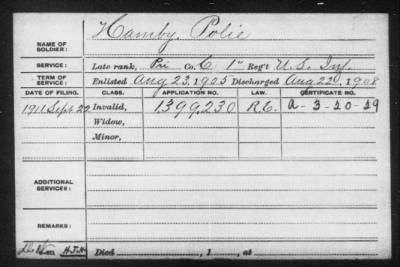 Hamby, Polie
NAME OF SOLDIER:
SERVICE: Late rank, Pri Co. C 1" Reg't U.S. Inf.
TERM OF SERVICE: Enlisted Aug 23, 1905 Discharged Aug 22, 1908
DATE OF FILING. CLASS. APPLICATION NO. LAW. CERTIFICATE NO.
1911 Sept 22 Invalid, 1399230 R.E. A-3-20-29
Widow,
Minor,
ADDITIONAL SERVICES:
REMARKS:
H.J.H. Died , 1 , at